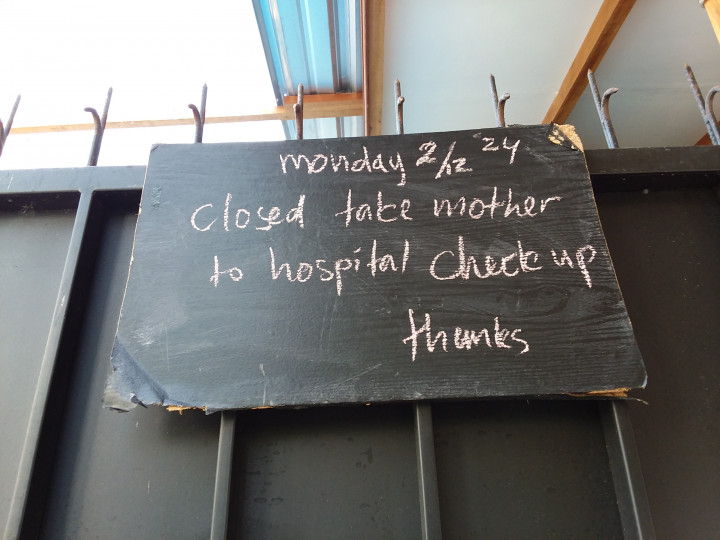 monday 2/12 24
closed take mother
to hospital check up
thanks